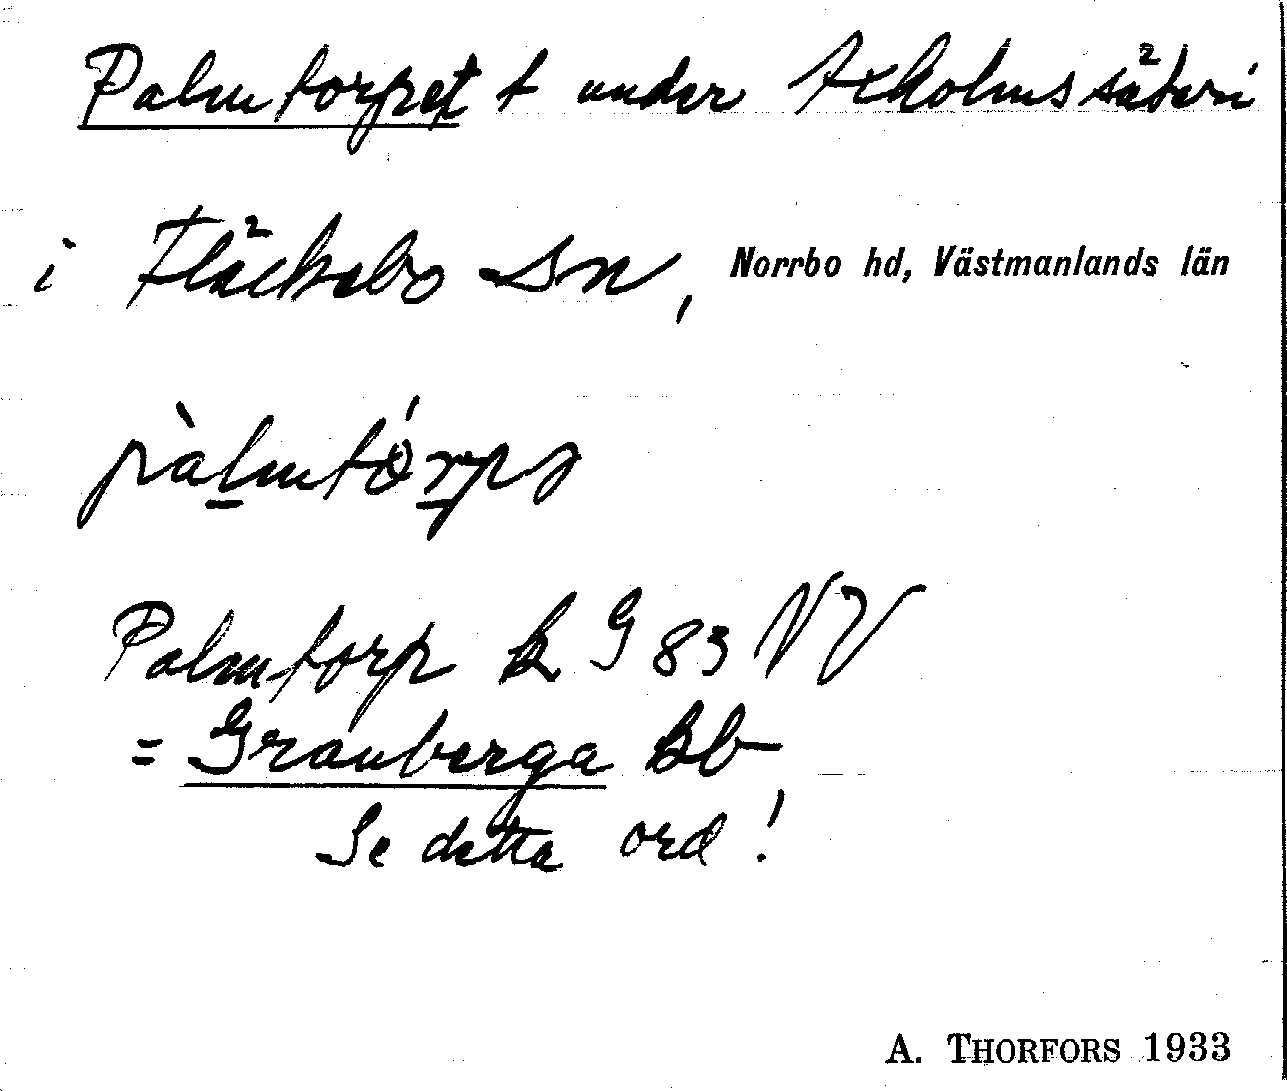 Palmtorpet t under Axholms säteri
i Fläckebo Sn, Norrbo hd, Västmanlands län
pàlmtórpə
Palmtorp k G 83 NV
= Granberga Bb
Se detta ord!
A. THORFORS 1933